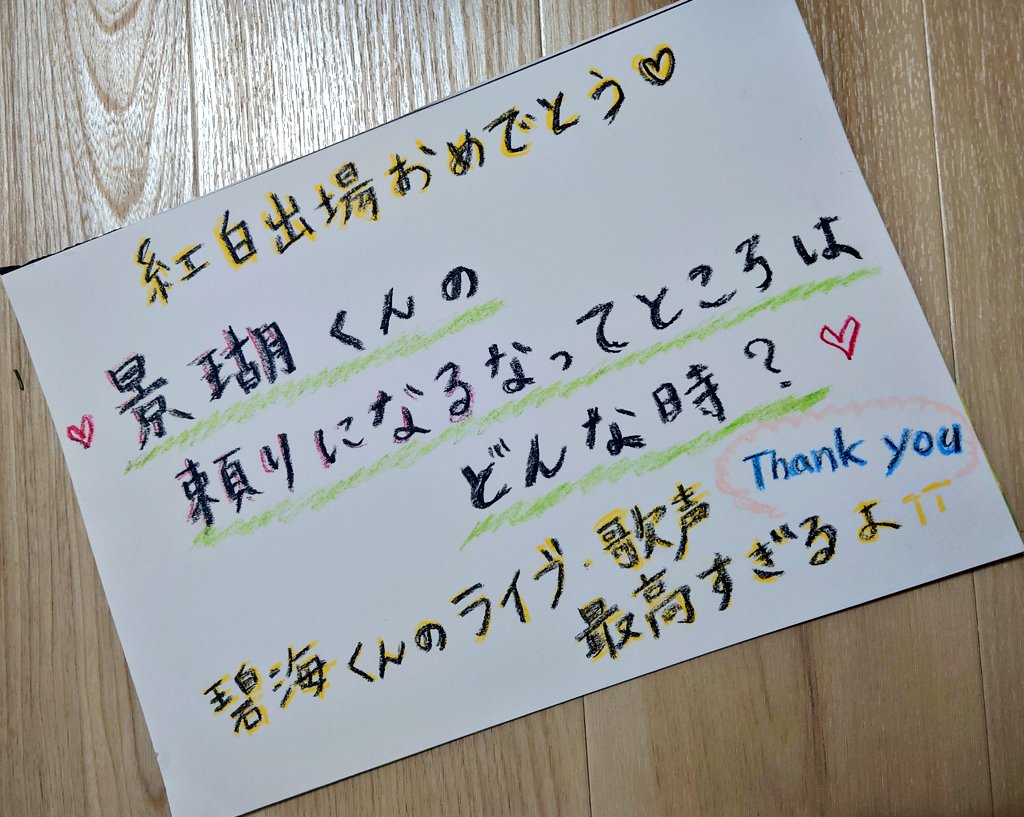 紅白出場おめでとう♡
景瑚くんの
頼りになるなってところは
どんな時?
Thank you
碧海くんのライブ・歌声
最高すぎるよTT